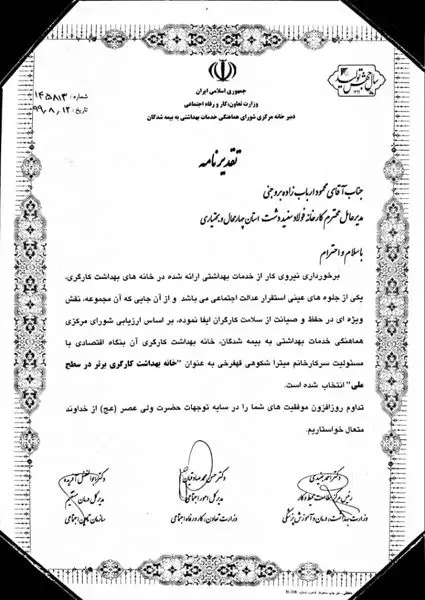 سال جهش تولید
۱۳۹۹
جمهوری اسلامی ایران
وزارت تعاون، کار و رفاه اجتماعی
دبیر خانه مرکزی شورای هماهنگی خدمات بهداشتی به بیمه شدگان
شماره: ۱۴۵۸۱۳
تاریخ: ۹۹،۸،۱۲
تقدیرنامه
جناب آقای محمود ارباب زاده بروجنی
مدیرعامل محترم کارخانه فولاد سفید دشت استان چهارمحال و بختیاری
با سلام و احترام
برخورداری نیروی کار از خدمات بهداشتی ارائه شده در خانه های بهداشت کارگری،
یکی از جلوه های عینی استقرار عدالت اجتماعی می باشد و از آن جایی که آن مجموعه، نقش
ویژه ای در حفظ و صیانت از سلامت کارگران ایفا نموده، بر اساس ارزیابی شورای مرکزی
هماهنگی خدمات بهداشتی به بیمه شدگان، خانه بهداشت کارگری آن بنگاه اقتصادی با
مسئولیت سرکارخانم میترا شکوهی قهفرخی به عنوان "خانه بهداشت کارگری برتر در سطح
ملی" انتخاب شده است.
تداوم روزافزون موفقیت های شما را در سایه توجهات حضرت ولی عصر (عج) از خداوند
متعال خواستاریم.
رئیس مرکز سلامت محیط و کار
وزارت بهداشت، درمان و آموزش پزشکی
مدیرکل امور اجتماعی
وزارت تعاون، کار و رفاه اجتماعی
مدیرکل درمان مستقیم
سازمان تامین اجتماعی